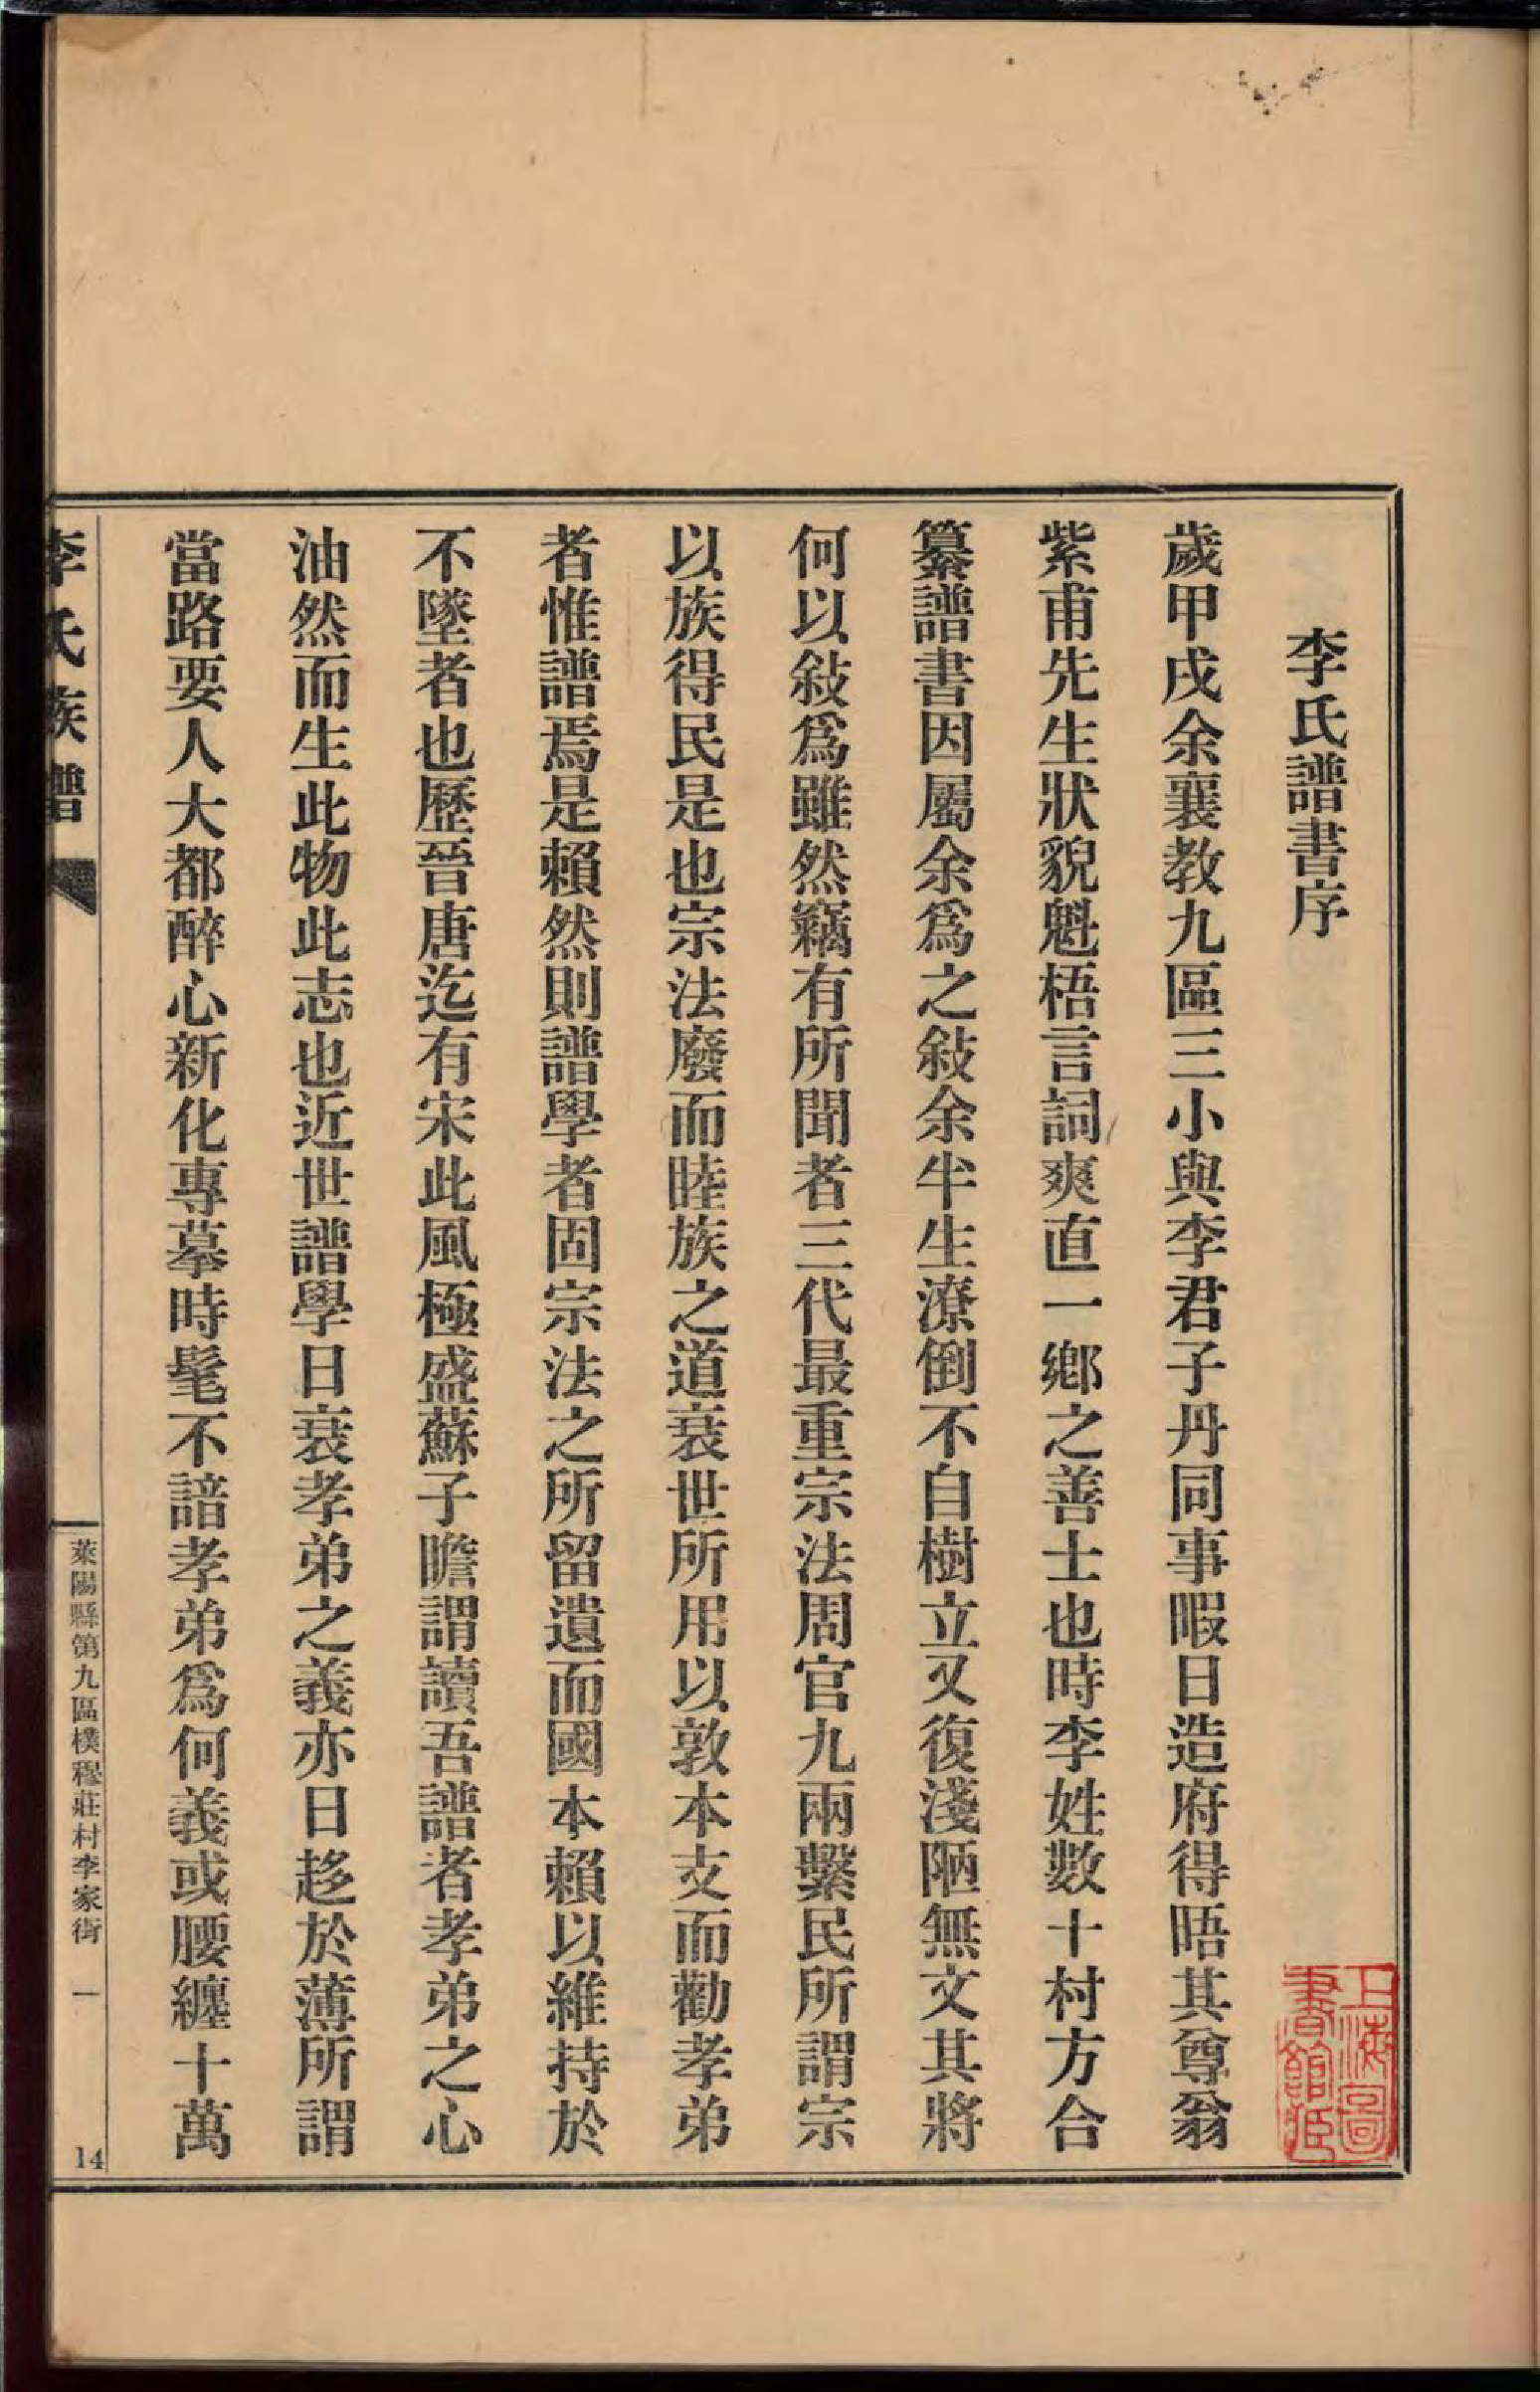 李氏譜書序
歲甲戌余襄教九區三小與李君子丹同事暇日造府得晤其尊翁
紫甫先生狀貌魁梧言詞爽直一鄉之善士也時李姓數十村方合
纂譜書因屬余爲之敍余半生潦倒不自樹立又復淺陋無文其將
何以敍爲雖然竊有所聞者三代最重宗法周官九兩繫民所謂宗
以族得民是也宗法廢而睦族之道衰世所用以敦本支而勸孝弟
者惟譜焉是賴然則譜學者固宗法之所留遺而國本賴以維持於
不墜者也歷晉唐迄有宋此風極盛蘇子瞻謂讀吾譜者孝弟之心
油然而生此物此志也近世譜學日衰孝弟之義亦日趍於薄所謂
當路要人大都醉心新化專摹時髦不諳孝弟爲何義或腰纏十萬
李氏族譜
萊陽縣第九區樸穆莊村李家街 一
14
上海圖
書館藏